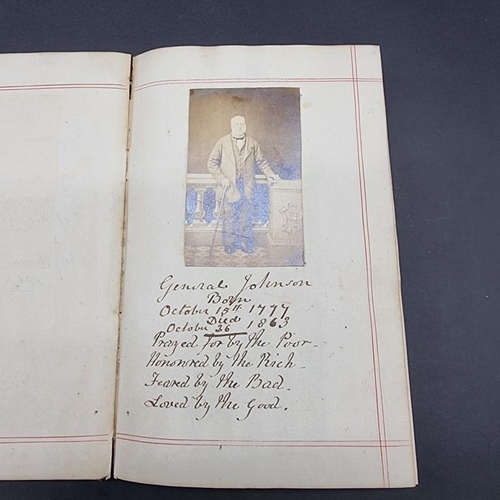 General Johnson
Born
October 15th 1777
Died
October 26 1863
Prayed for by the Poor -
Honored by the Rich -
Feared by the Bad.
Loved by the Good.